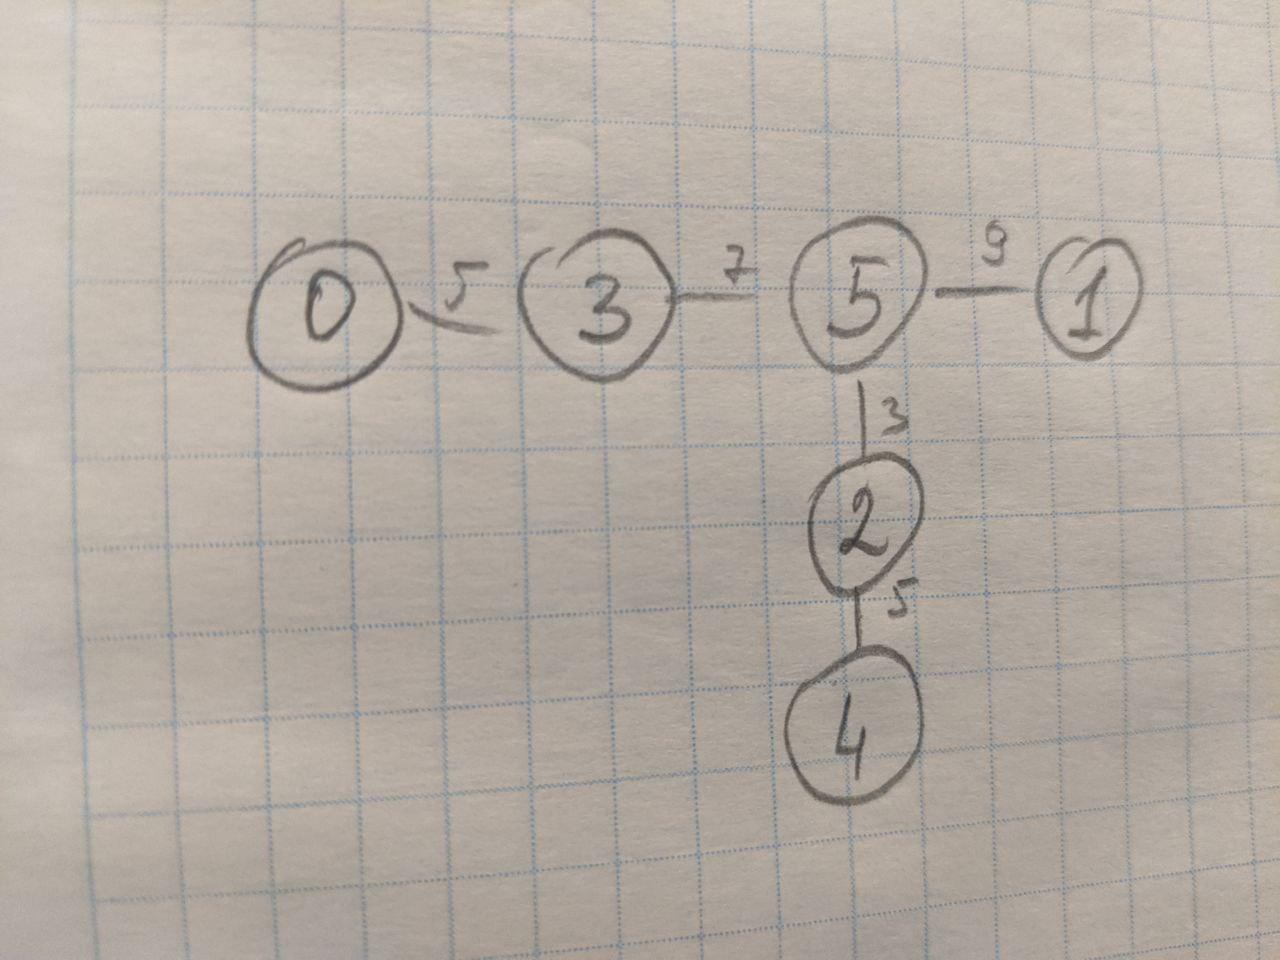 0 5 3 7 5 9 1
3
2
5
4